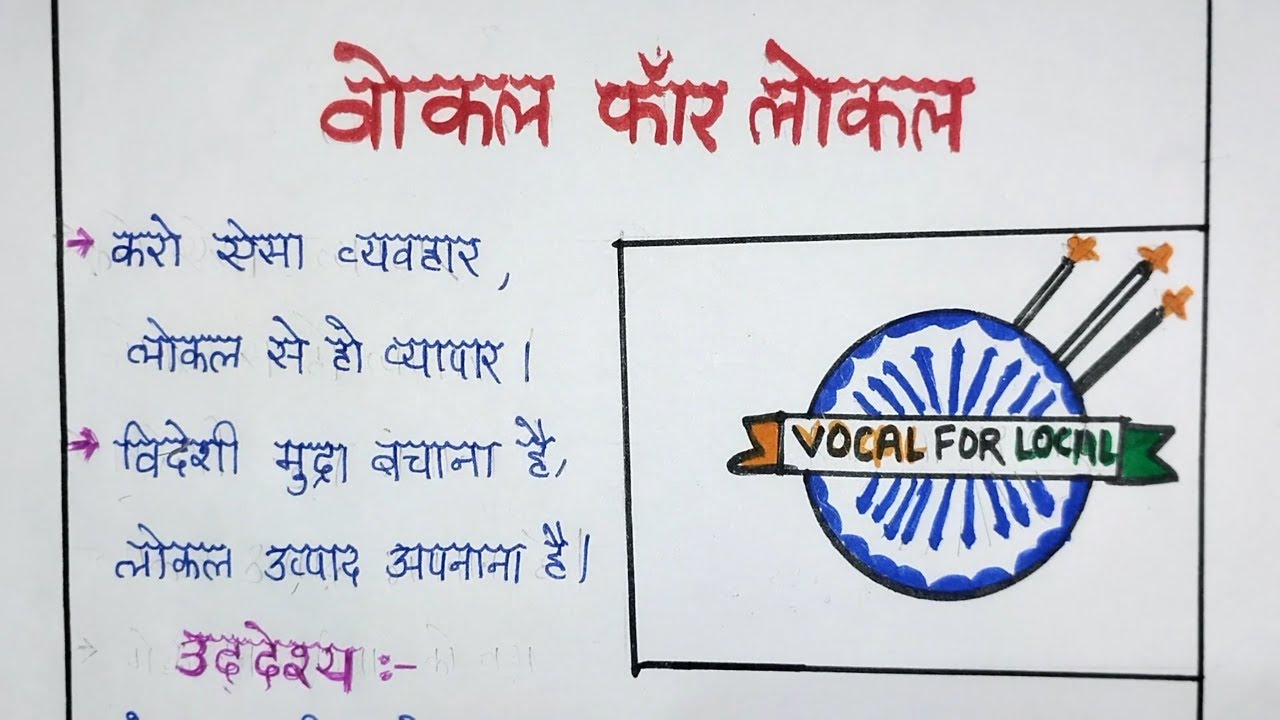 वोकल फॉर लोकल
→ करो सेसा व्यवहार,
लोकल से हो व्यापार।
→ विदेशी मुद्रा बचाना है,
लोकल उत्पाद अपनाना है।
VOCAL FOR LOCAL
उद्देश्य :-